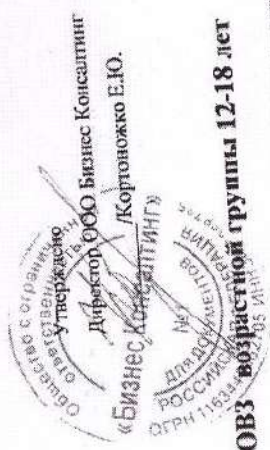 Утверждено
Директор ООО Бизнес Консалтинг
/Кортоножко Е.Ю.
Общество с ограниченной
ответственностью
«Бизнес Консалтинг»
№1
для документов
ОВЗ возрастной группы 12-18 лет